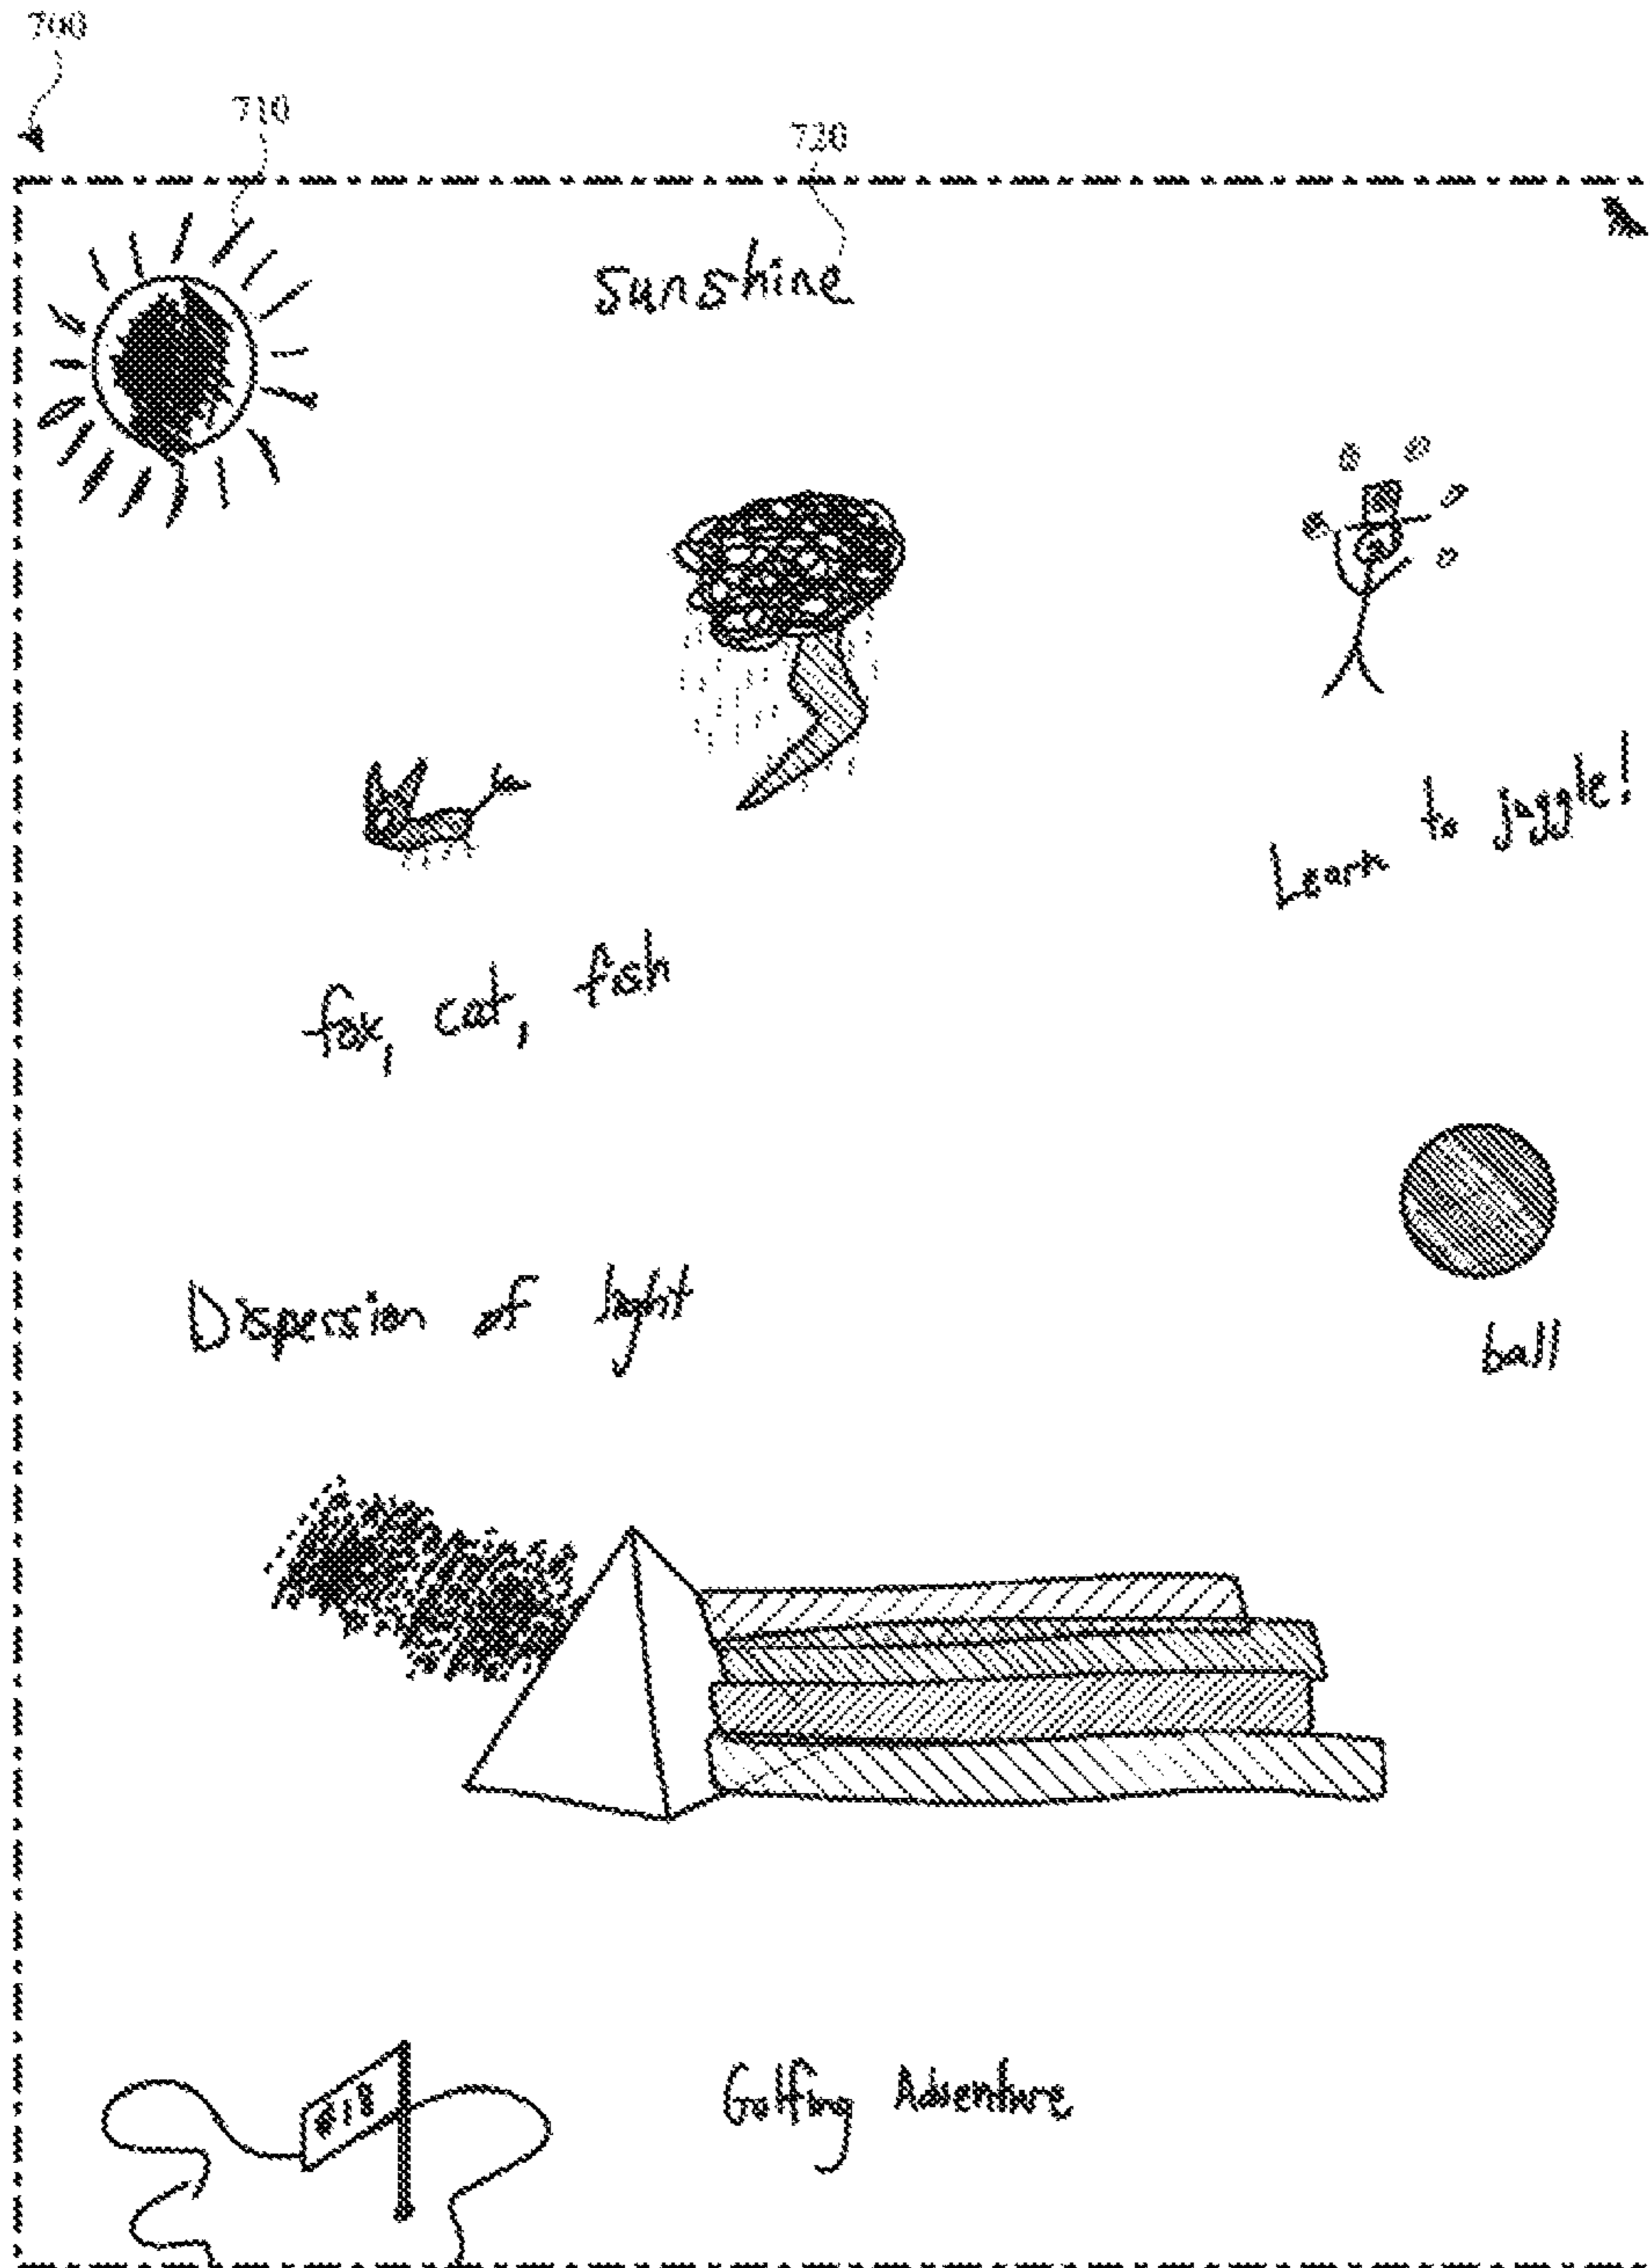 700
710
730
sunshine
Learn to juggle!
fox, cat, fish
ball
Dispersion of light
#18
Golfing Adventure